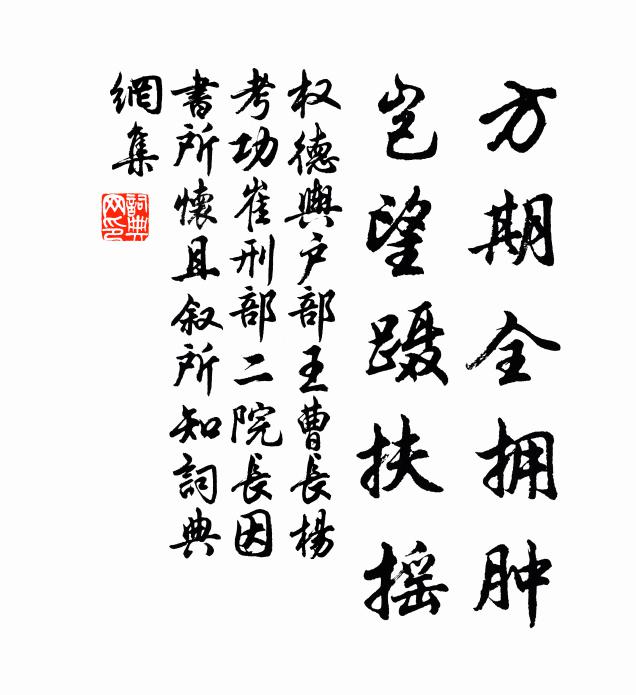 方期全拥肿
岂望蹑扶摇
权德舆户部王曹长杨
考功崔刑部二院长因
書所懷且叙所知詞典
網集
詞典网印